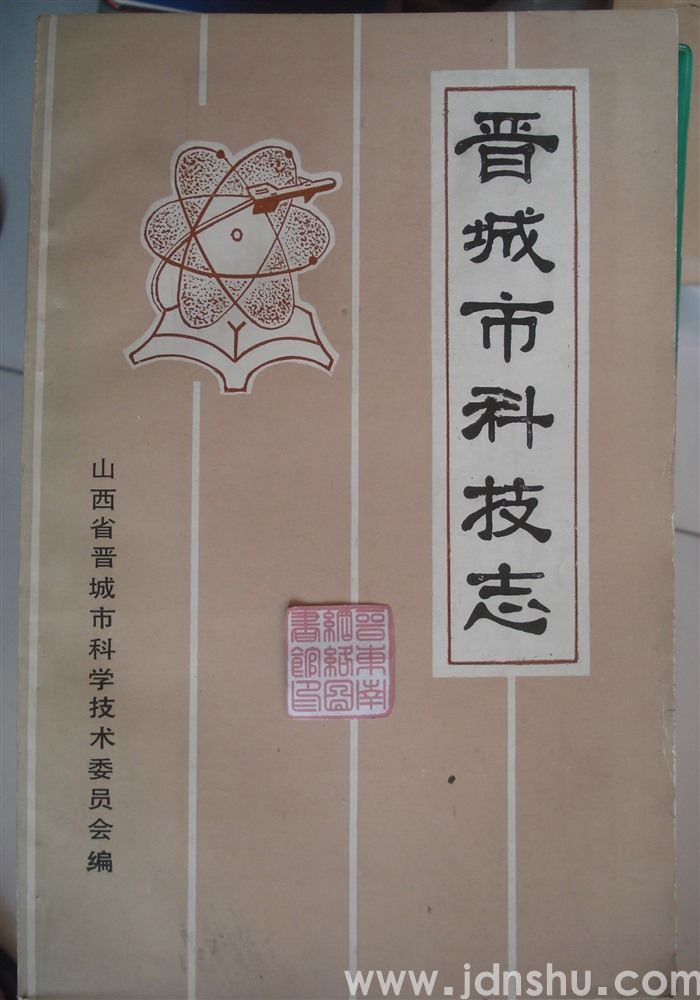 晋城市科技志
山西省晋城市科学技术委员会编
晋東南
網絡圖
書館印
www.jdnshu.com